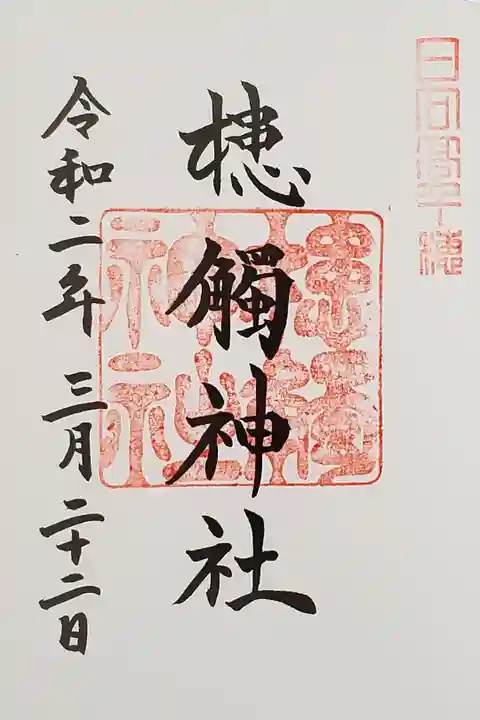 日向高千穂
槵觸神社
令和二年 三月二十二日